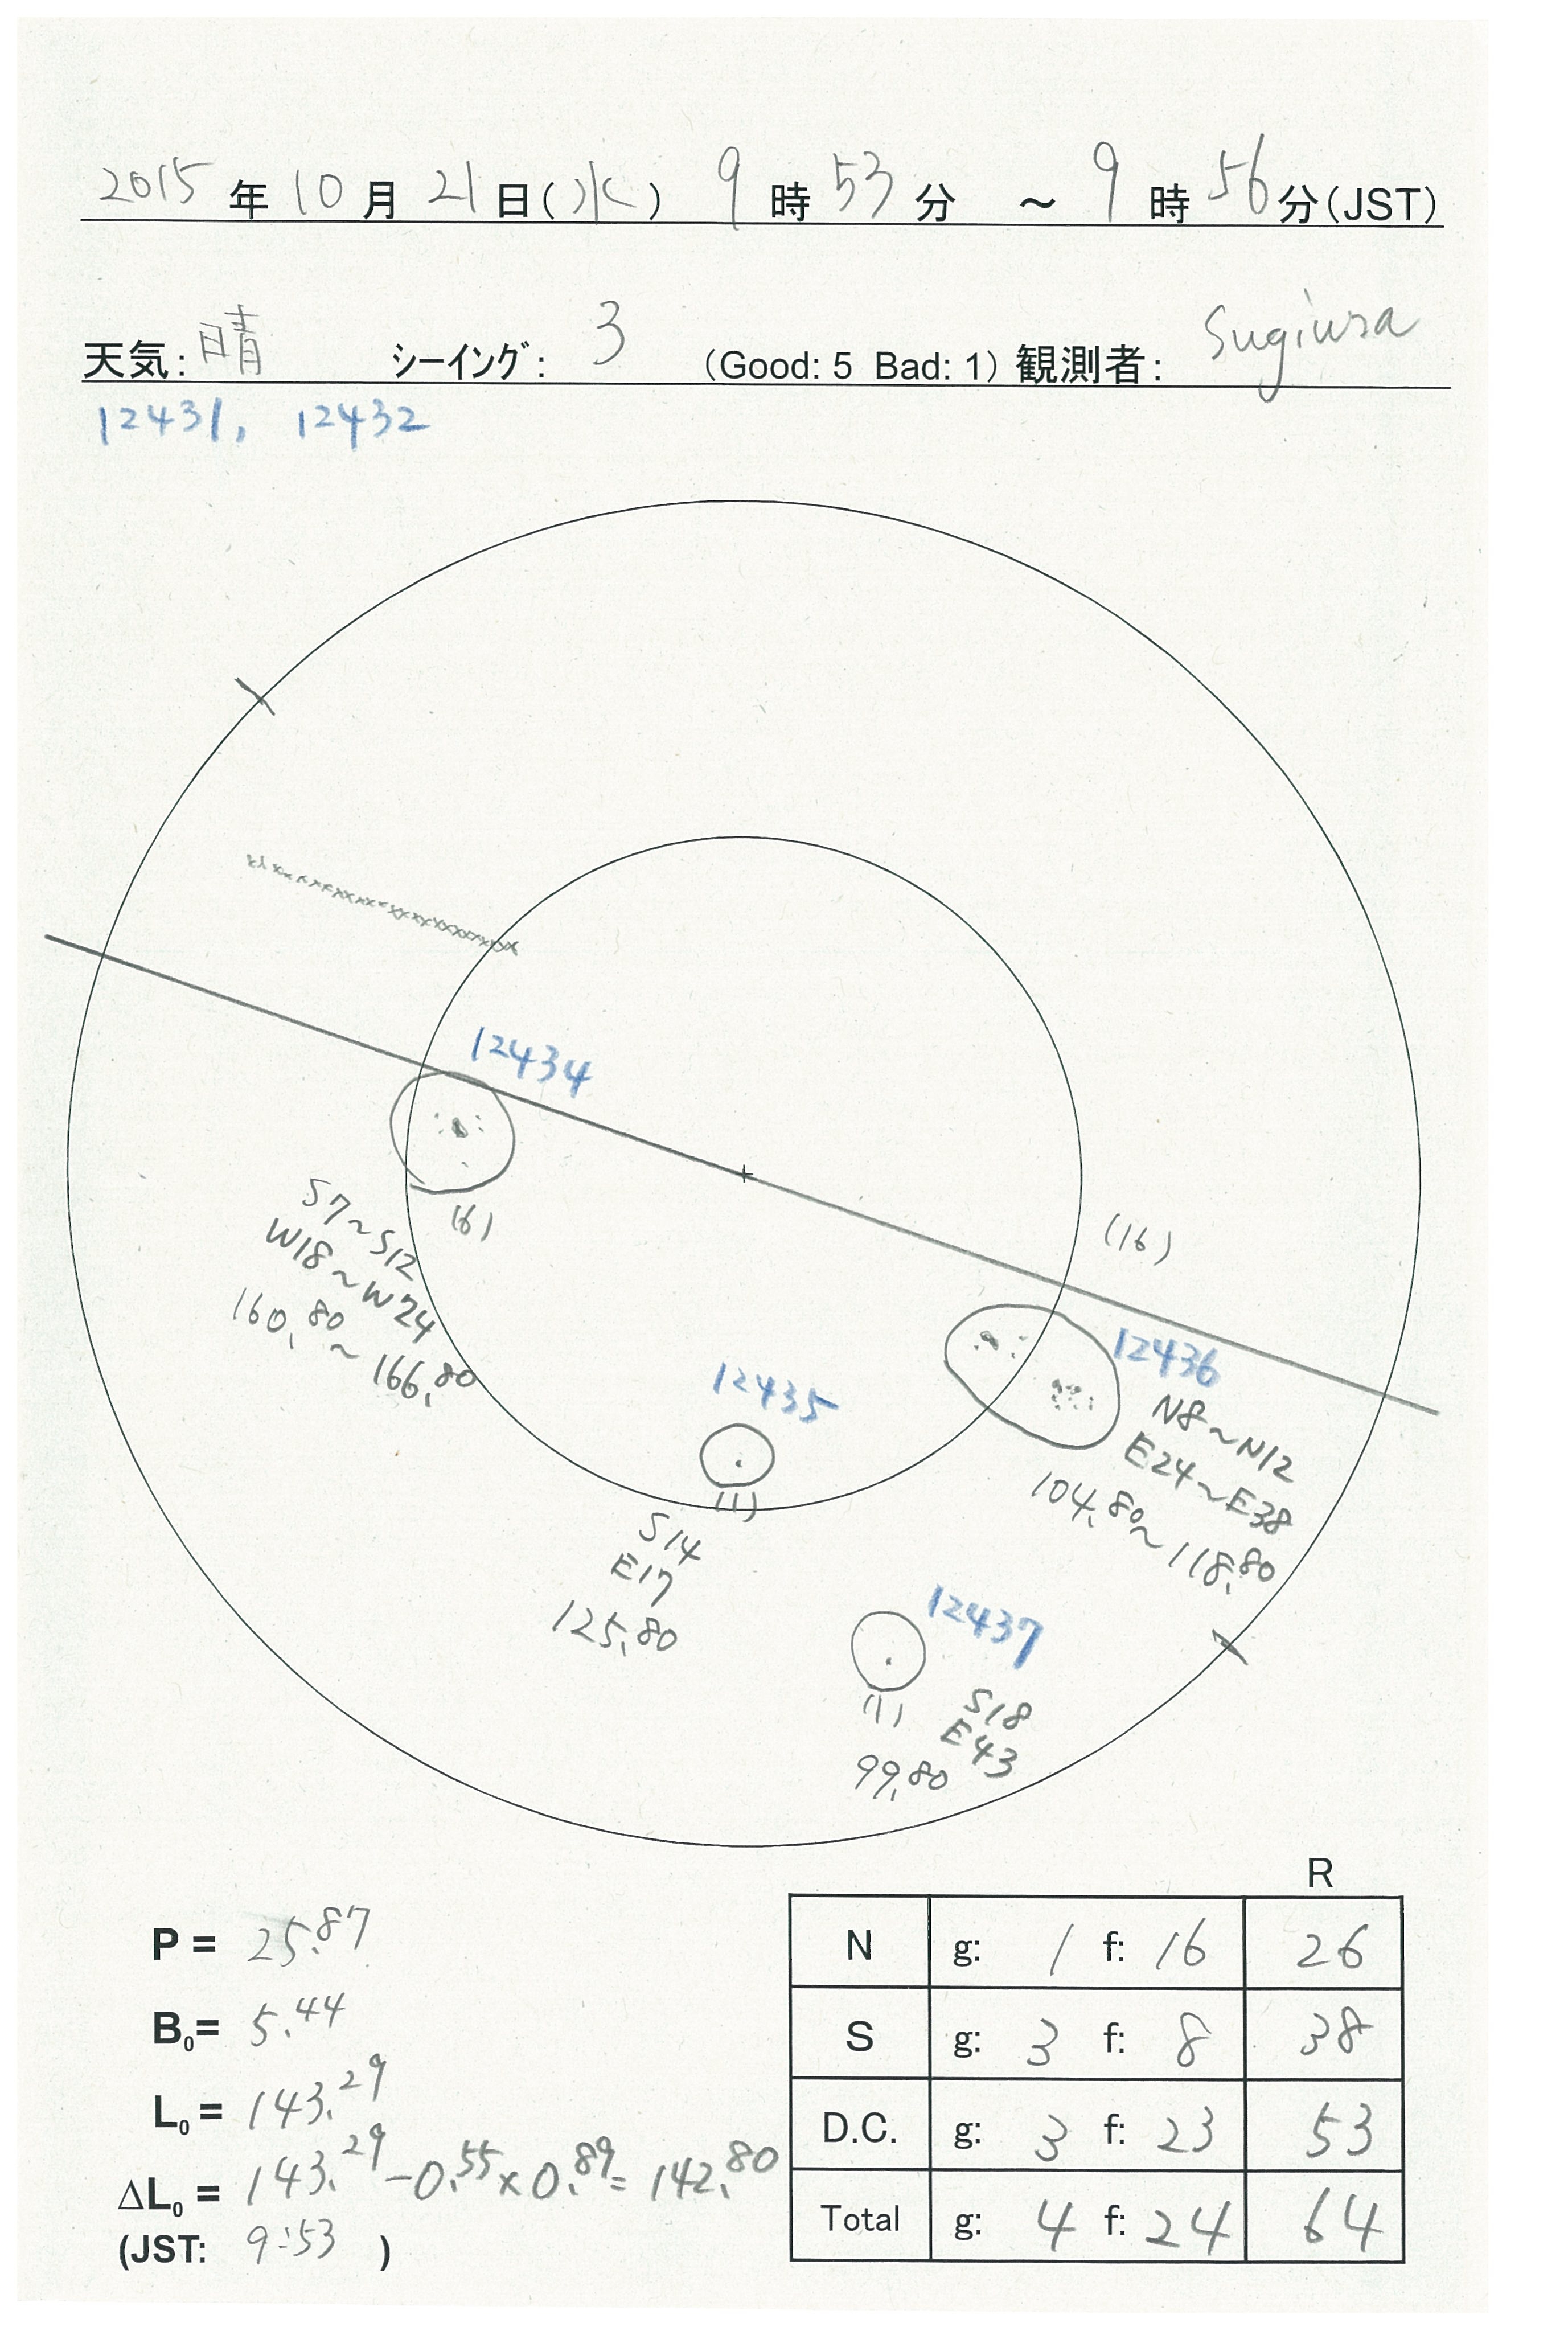 2015年10月21日(水) 9時53分 ～ 9時56分(JST)
天気:晴 シーイング: 3 (Good: 5 Bad: 1) 観測者: Sugiura
12431, 12432
12434
(6)
S7~S12
W18~W24
160.80~166.80
(16)
12436
N8~N12
E24~E38
104.80~118.80
12435
(1)
S14
E17
125.80
12437
(1)
S18
E43
99.80
R
P = 25.87
B0= 5.44
L0= 143.29
ΔL0= 143.29-0.55×0.89=142.80
(JST: 9:53 )
N g: 1 f: 16 26
S g: 3 f: 8 38
D.C. g: 3 f: 23 53
Total g: 4 f: 24 64